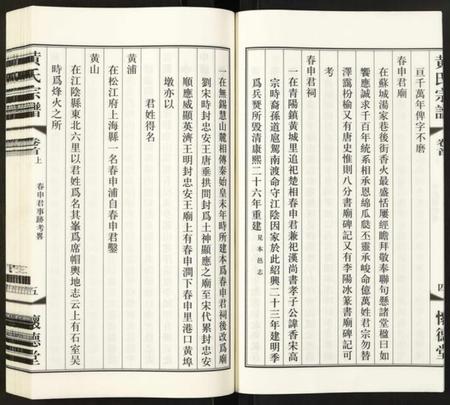 黃氏宗譜
卷首
四
懷德堂
亘千萬年俾字不磨
春申君廟
在蘇城湯家巷後街香火最盛恬屢經瞻拜敬奉聯句懸諸堂楹曰如
饗應誠求千百年統系相承恩綿瓜瓞丕靈承峻命億萬姓君宗勿替
澤靄枌榆又有唐史惟則八分書廟碑記又有李陽冰篆書廟碑記可
考
春申君祠
一在青陽鎮黃城里追祀楚相春申君兼祀漢尚書孝子公諱香宋高
宗時香裔孫從扈駕南渡命守江陰因家於此紹興二十三年建明季
爲兵燹所毀清康熙二十六年重建見本邑志
一在無錫慧山麓相傳秦始皇末年時所建本爲春申君祠後改爲廟
劉宋時封忠安王唐垂拱間封爲土神顯應之廟至宋代累封忠安
順應威顯英濟王明封忠安王廟上有春申澗下春申里港口黃埠
墩亦以
君姓得名
黃浦
在松江府上海縣一名春申浦自春申君鑿
黃山
在江陰縣東北六里以君姓爲名其峯爲席帽輿地志云上有石室吳
時爲烽火之所
黃氏宗譜
卷首上
春申君事跡考畧
五
懷德堂